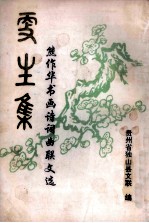 雯生集
熊作华书画语词曲联文选
贵州省独山县文联 编